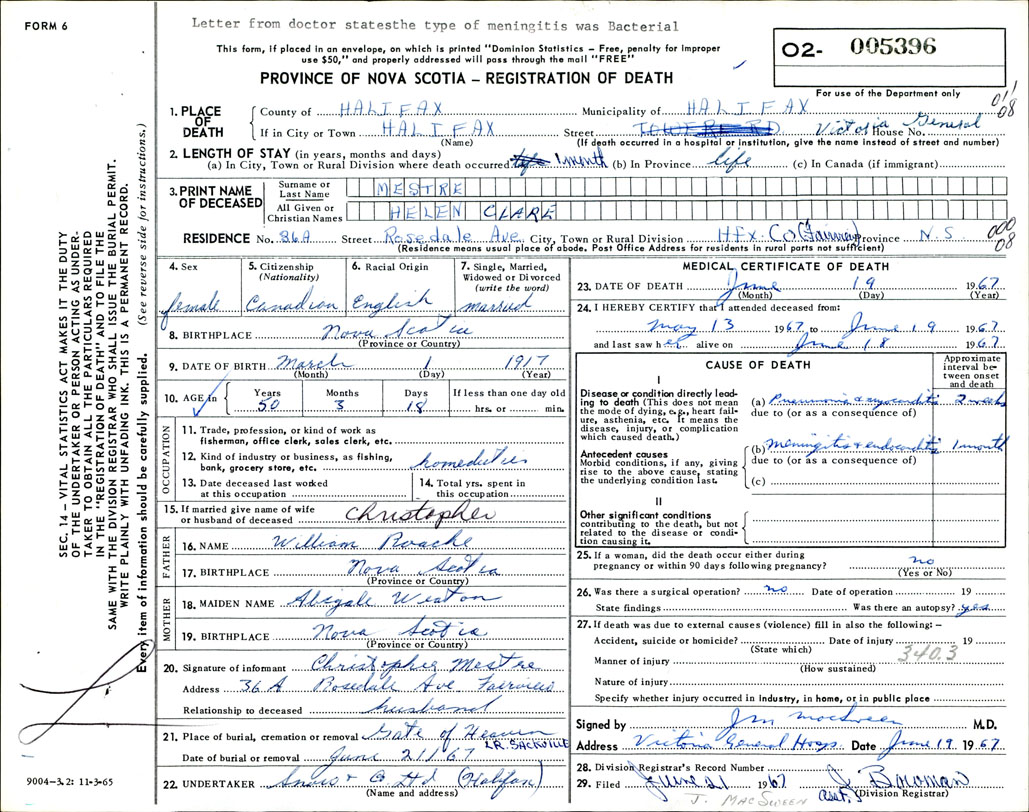 FORM 6
Letter from doctor statesthe type of meningitis was Bacterial
This form, if placed in an envelope, on which is printed "Dominion Statistics – Free, penalty for improper
use $50," and properly addressed will pass through the mail "FREE"
PROVINCE OF NOVA SCOTIA – REGISTRATION OF DEATH
O2- 005396
For use of the Department only
011
08
1. PLACE OF DEATH
County of HALIFAX Municipality of HALIFAX
If in City or Town HALIFAX Street Victoria General House No.
(Name) (If death occurred in a hospital or institution, give the name instead of street and number)
2. LENGTH OF STAY (in years, months and days)
(a) In City, Town or Rural Division where death occurred 1 month (b) In Province life (c) In Canada (if immigrant)
3. PRINT NAME OF DECEASED
Surname or Last Name MESTRE
All Given or Christian Names HELEN CLARE
RESIDENCE No. 36A Street Rosedale Ave City, Town or Rural Division Hfx. Co (Fairview) Province N.S
(Residence means usual place of abode. Post Office Address for residents in rural parts not sufficient)
000
08
4. Sex female
5. Citizenship (Nationality) Canadian
6. Racial Origin English
7. Single, Married, Widowed or Divorced (write the word) married
8. BIRTHPLACE Nova Scotia
(Province or Country)
9. DATE OF BIRTH March 1 1917
(Month) (Day) (Year)
10. AGE in Years 50 Months 3 Days 18 If less than one day old hrs. or min.
OCCUPATION
11. Trade, profession, or kind of work as
fisherman, office clerk, sales clerk, etc.
12. Kind of industry or business, as fishing,
bank, grocery store, etc. homeduties
13. Date deceased last worked
at this occupation
14. Total yrs. spent in
this occupation
15. If married give name of wife
or husband of deceased Christopher
FATHER
16. NAME William Roache
17. BIRTHPLACE Nova Scotia
(Province or Country)
MOTHER
18. MAIDEN NAME Abigale Weston
19. BIRTHPLACE Nova Scotia
(Province or Country)
20. Signature of informant Christopher Mestre
Address 36 A Rosedale Ave Fairview
Relationship to deceased husband
21. Place of burial, cremation or removal Gate of Heaven
LR. SACKVILLE
Date of burial or removal June 21/67
22. UNDERTAKER Snows & Co Ltd (Halifax)
(Name and address)
MEDICAL CERTIFICATE OF DEATH
23. DATE OF DEATH June 19 1967
(Month) (Day) (Year)
24. I HEREBY CERTIFY that I attended deceased from:
May 13 1967 to June 19 1967
and last saw her alive on June 18 1967
CAUSE OF DEATH
Approximate interval between onset and death
I
Disease or condition directly leading to death (This does not mean the mode of dying, e.g., heart failure, asthenia, etc. It means the disease, injury, or complication which caused death.)
(a) Pneumonia & myocarditis 2 weeks
due to (or as a consequence of)
Antecedent causes
Morbid conditions, if any, giving rise to the above cause, stating the underlying condition last.
(b) Meningitis & endocarditis 1 month
due to (or as a consequence of)
(c)
II
Other significant conditions
contributing to the death, but not related to the disease or condition causing it.
25. If a woman, did the death occur either during
pregnancy or within 90 days following pregnancy? no
(Yes or No)
26. Was there a surgical operation? no Date of operation 19
State findings Was there an autopsy? yes
27. If death was due to external causes (violence) fill in also the following: –
Accident, suicide or homicide? Date of injury 19
(State which) 340.3
Manner of injury
(How sustained)
Nature of injury
Specify whether injury occurred in industry, in home, or in public place
Signed by J M MacSween M.D.
Address Victoria General Hosp. Date June 19 1967
28. Division Registrar's Record Number
29. Filed June 21 1967 J. Bowman
Asst. (Division Registrar)
J. MACSWEEN
SEC. 14 – VITAL STATISTICS ACT MAKES IT THE DUTY
OF THE UNDERTAKER OR PERSON ACTING AS UNDER-
TAKER TO OBTAIN ALL THE PARTICULARS REQUIRED
IN THE "REGISTRATION OF DEATH" AND TO FILE THE
SAME WITH THE DIVISION REGISTRAR WHO SHALL ISSUE THE BURIAL PERMIT.
WRITE PLAINLY WITH UNFADING INK. THIS IS A PERMANENT RECORD.
Every item of information should be carefully supplied. (See reverse side for instructions.)
9004-3.2: 11-3-65